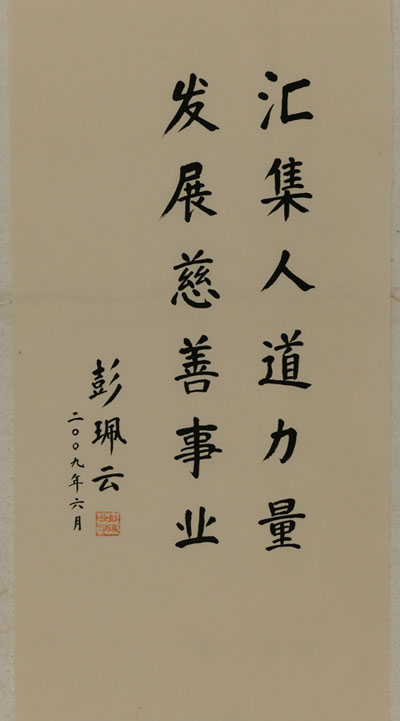 汇集人道力量
发展慈善事业
彭珮云
二〇〇九年六月